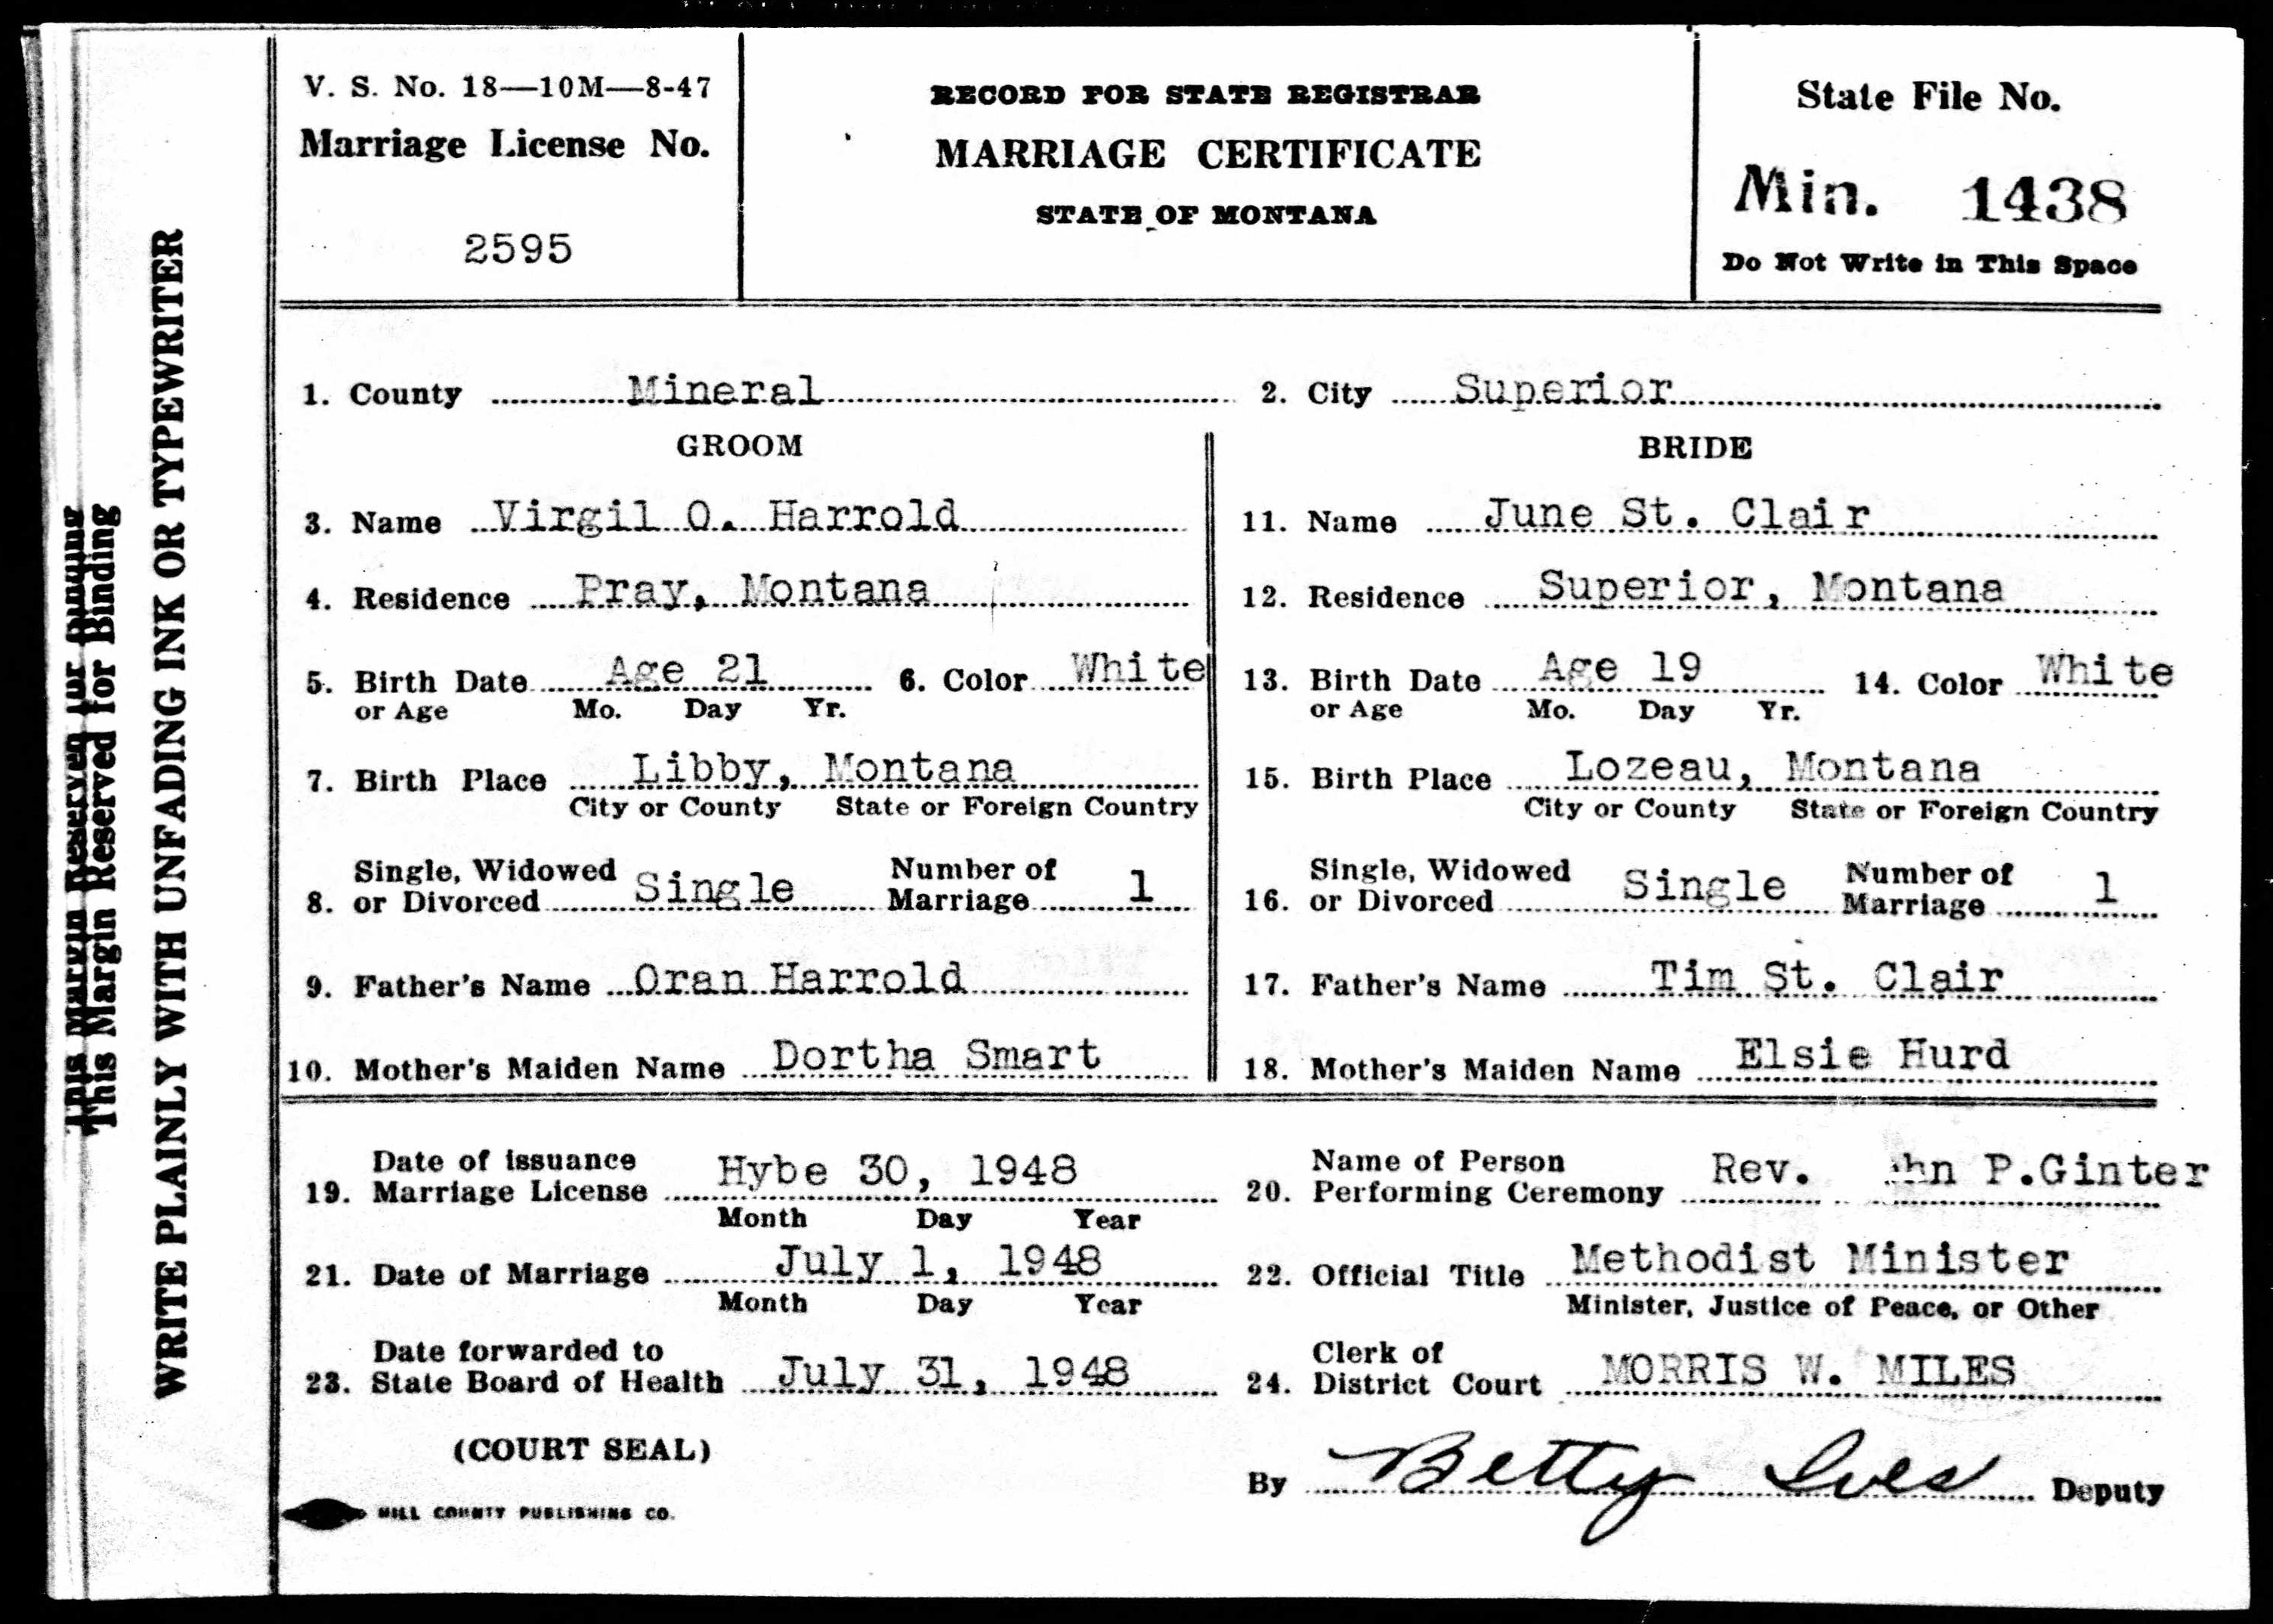 V. S. No. 18—10M—8-47
Marriage License No.
2595
RECORD FOR STATE REGISTRAR
MARRIAGE CERTIFICATE
STATE OF MONTANA
State File No.
Min. 1438
Do Not Write in This Space
This Margin Reserved for Binding
This Margin Reserved for Binding
WRITE PLAINLY WITH UNFADING INK OR TYPEWRITER
1. County Mineral 2. City Superior
GROOM
3. Name Virgil O. Harrold
4. Residence Pray, Montana
5. Birth Date Age 21 6. Color White
or Age Mo. Day Yr.
7. Birth Place Libby, Montana
City or County State or Foreign Country
Single, Widowed Number of
8. or Divorced Single Marriage 1
9. Father's Name Oran Harrold
10. Mother's Maiden Name Dortha Smart
BRIDE
11. Name June St. Clair
12. Residence Superior, Montana
13. Birth Date Age 19 14. Color White
or Age Mo. Day Yr.
15. Birth Place Lozeau, Montana
City or County State or Foreign Country
Single, Widowed Number of
16. or Divorced Single Marriage 1
17. Father's Name Tim St. Clair
18. Mother's Maiden Name Elsie Hurd
Date of issuance
19. Marriage License Hybe 30, 1948
Month Day Year
Name of Person
20. Performing Ceremony Rev. P.Ginter
21. Date of Marriage July 1, 1948
Month Day Year
22. Official Title Methodist Minister
Minister, Justice of Peace, or Other
Date forwarded to
23. State Board of Health July 31, 1948
Clerk of
24. District Court MORRIS W. MILES
(COURT SEAL)
By Betty Ives Deputy
HILL COUNTY PUBLISHING CO.